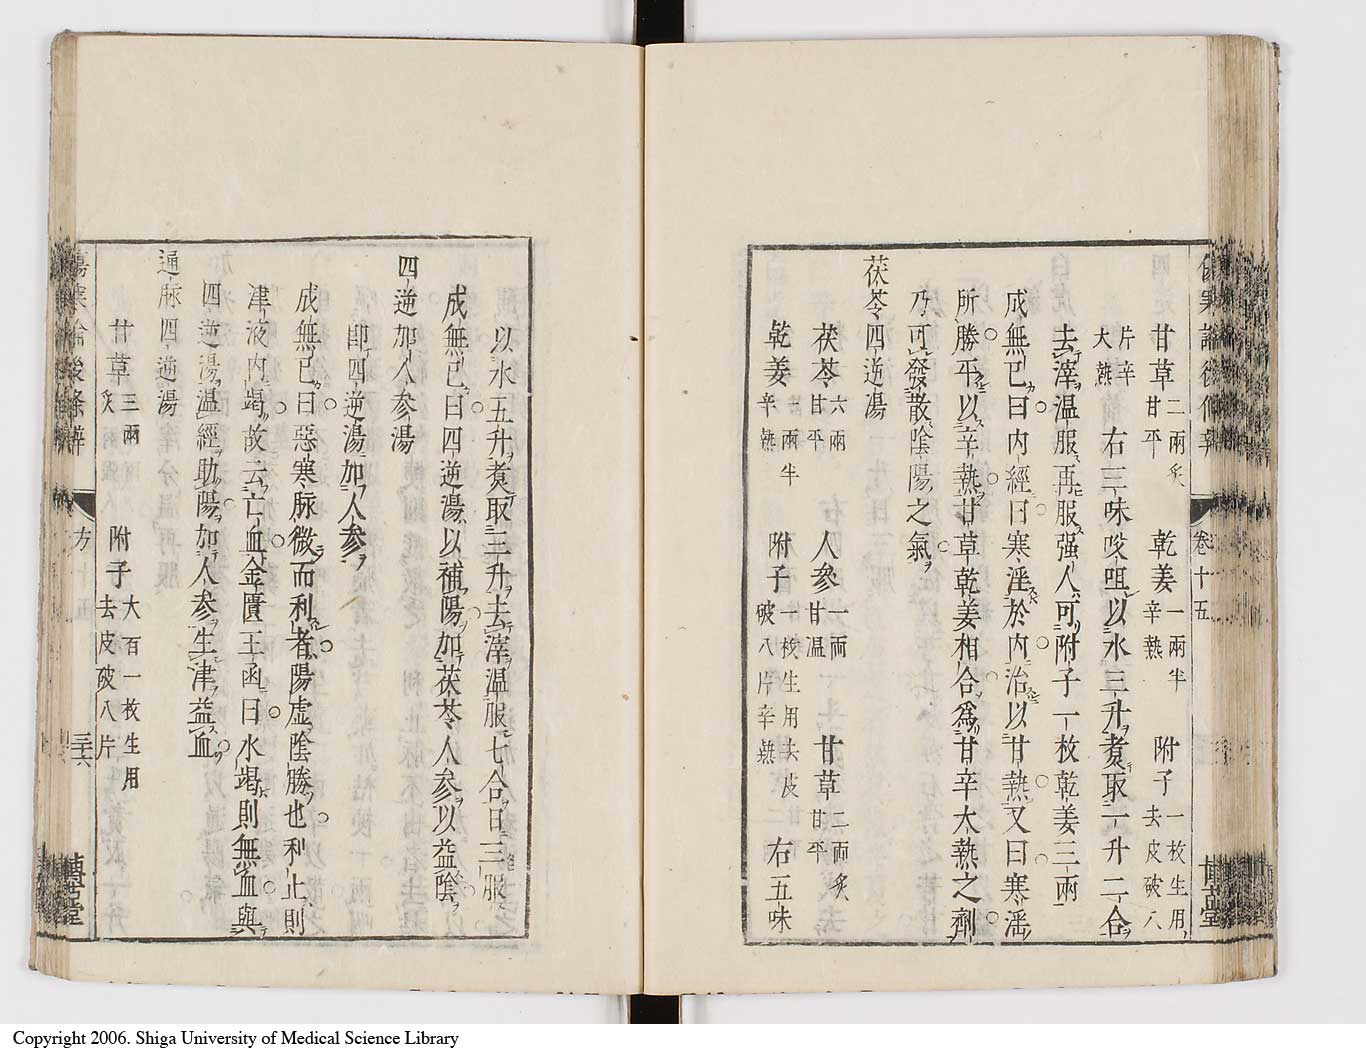 甘草二兩炙甘平 乾姜一兩半辛熱 附子一枚生用去皮破八
片辛大熱 右三味㕮咀以水三升煮取一升二合
去滓温服再服强人可附子一枚乾姜三兩
成無已曰内經曰寒淫於内治以甘熱又曰寒淫
所勝平以辛熱甘草乾姜相合為甘辛大熱之劑
乃可發散陰陽之氣
茯苓四逆湯
茯苓六兩甘平 人參一兩甘温 甘草二兩炙甘平
乾姜一兩半辛熱 附子一枚生用去皮破八片辛熱 右五味
卷十五
以水五升煮取三升去滓温服七合日三服
成無已曰四逆湯以補陽加茯苓人參以益陰
四逆加人參湯
即四逆湯加人參
成無已曰惡寒脉微而利者陽虚陰勝也利止則
津液内竭故云亡血金匱玉函曰水竭則無血與
四逆湯温經助陽加人參生津益血
通脉四逆湯
甘草三兩炙 附子大百一枚生用去皮破八片
傷寒論後條辨 方 十五 三十六 博古堂
Copyright 2006. Shiga University of Medical Science Library